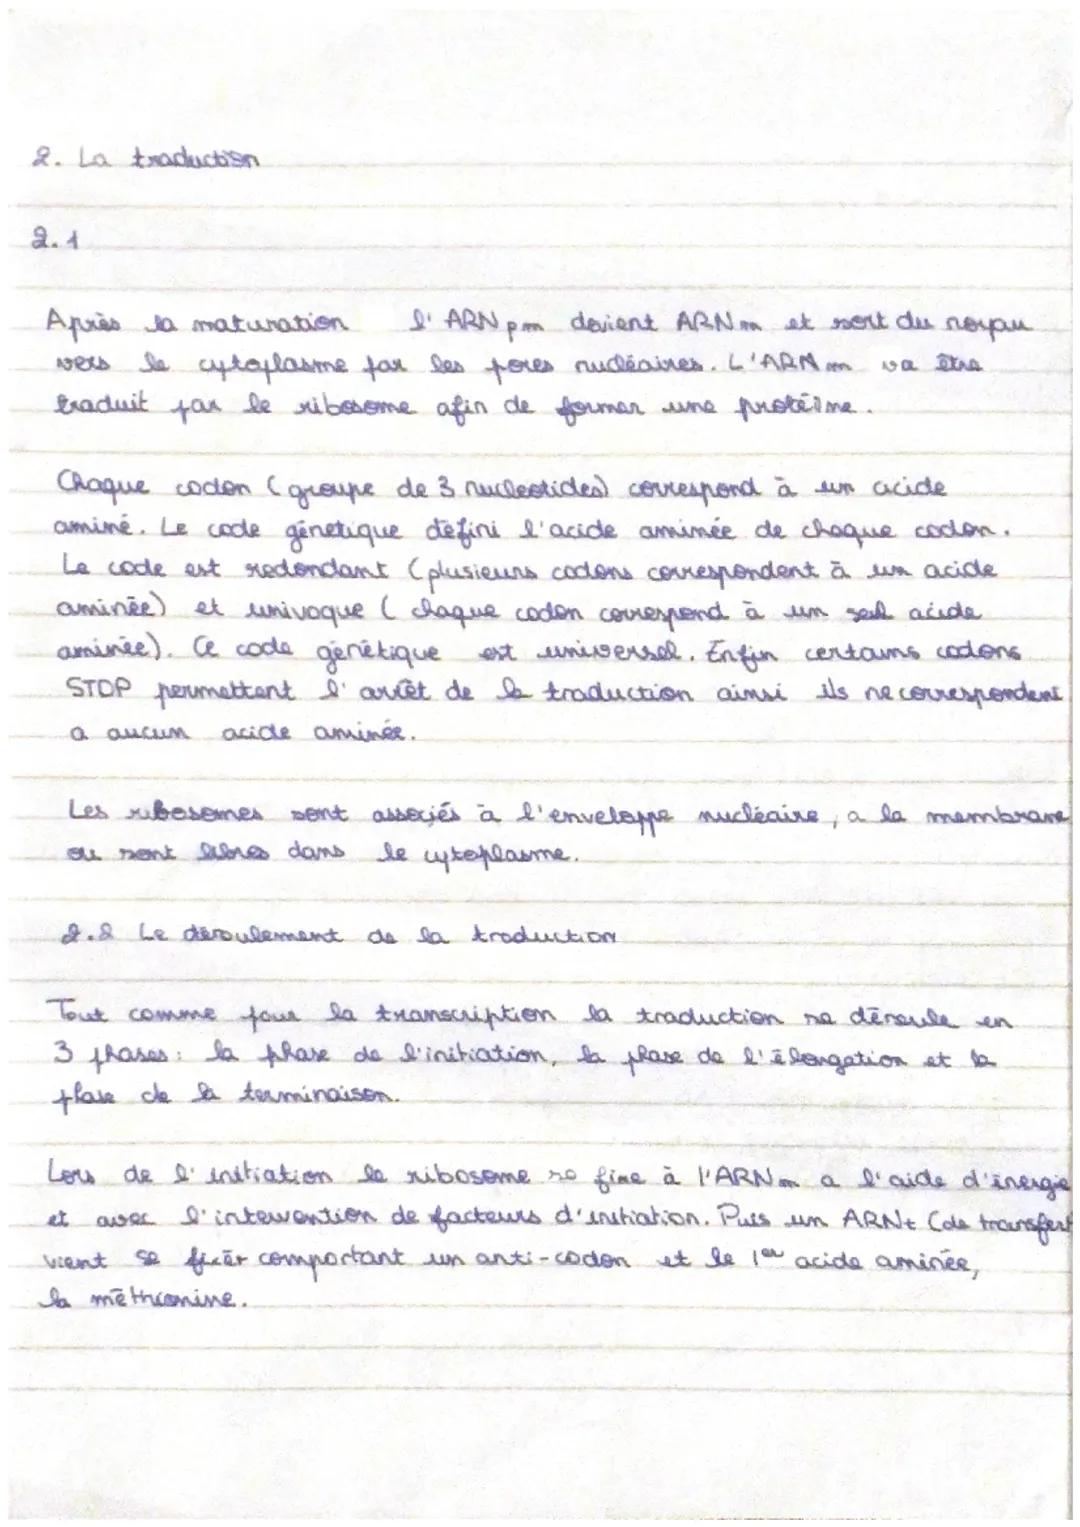 2. La traduction
2.1
Après la maturation l'ARN pm devient ARN m et sort du noyau
vers le cytoplasme par les pores nucléaires. L'ARN m va être
traduit par le ribosome afin de former une protéine.
Chaque codon (groupe de 3 nucleotides) correspond à un acide
aminé. Le code génetique défini l'acide aminée de chaque codon.
Le code est redondant (plusieurs codons correspondent à un acide
aminée) et univoque (chaque codon correspond à un seul acide
aminée). Ce code génétique est universel. Enfin certains codons
STOP permettent l'arrêt de la traduction ainsi ils ne correspondent
a aucun acide aminée.
Les ribosomes sont associés à l'enveloppe nucléaire, a la membrane
ou sont libres dans le cytoplasme.
2.2 Le déroulement de la traduction
Tout comme pour la transcription la traduction se déroule en
3 phases: la phase de l'initiation, la phase de l'élongation et la
phase de la terminaison.
Lors de l'initiation le ribosome se fixe à l'ARN m a l'aide d'énergie
et avec l'intervention de facteurs d'initiation. Puis un ARNt (de transfert
vient se fixér comportant un anti-codon et le 1er acide aminée,
la méthionine.